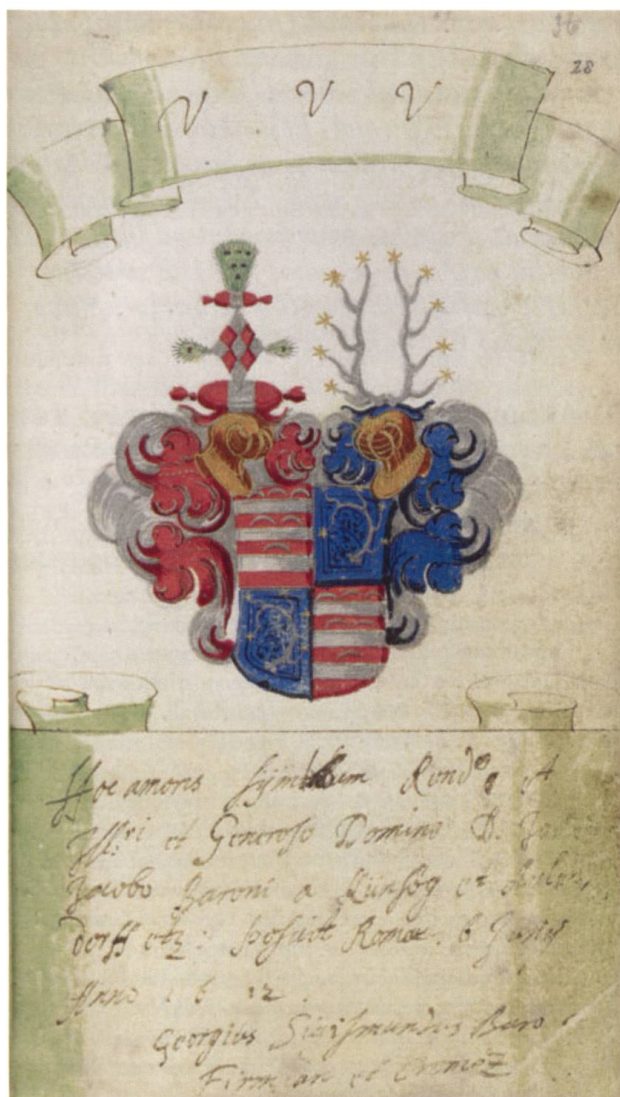 36
28
V V V
Hoc amoris Rond.º et
Ill.ri et Generoso Domino D.
Jacobo Baroni a Künsög et
dorff etz: posuit Romae. 6 Junij
Anno 1612.
Georgius Sigismundus Baro
Firmian et Cromez